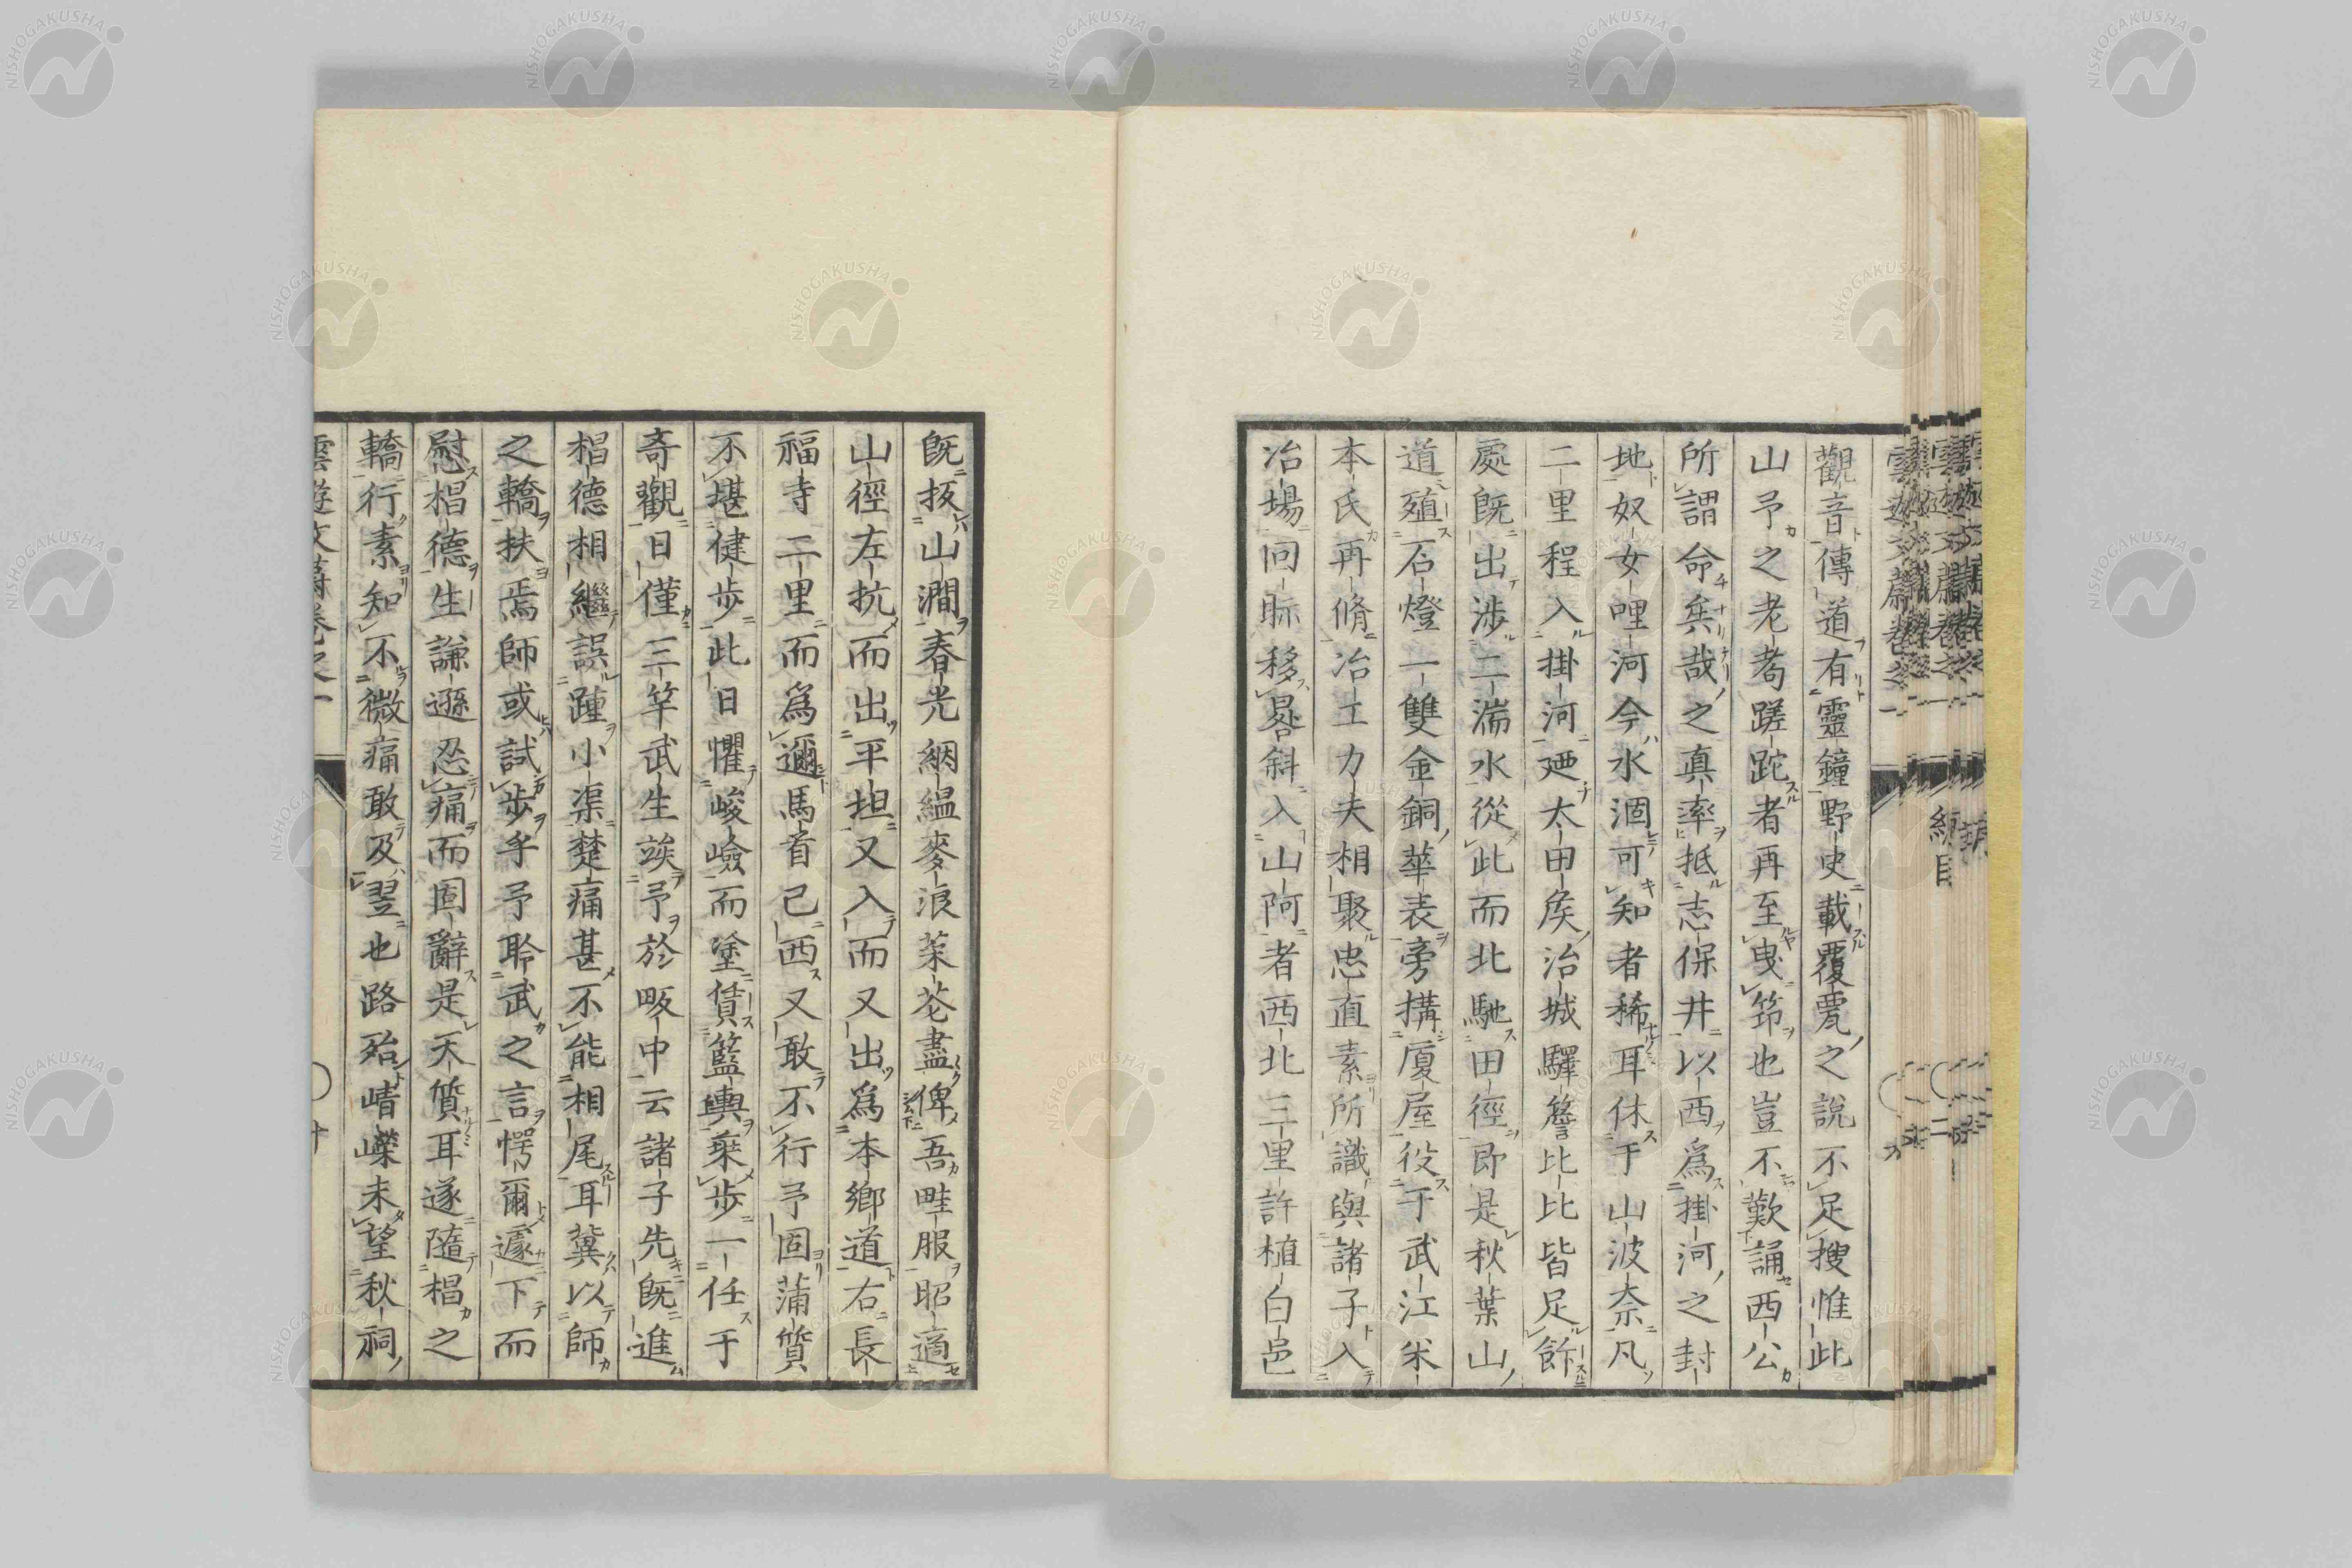 觀音傳道有靈鐘野史載覆甕之說不足搜惟此
山予之老耈蹉跎者再至曳笻也豈不歎誦西公
所謂命兵哉之真率抵志保井以西爲掛河之封
地奴女哩河今水涸可知者稀耳休于山波奈凡
二里程入掛河廼太田矦治城驛簷比比皆足飾
處旣出涉二湍水從此而北馳田徑即是秋葉山
道殖石燈一雙金銅華表旁搆厦屋役于武江米
本氏再脩冶工力夫相聚忠直素所識與諸子入
冶場回眎移晷斜入山阿者西北三里許植白邑
旣扳山澗春光絪縕麥浪菜花盡俾吾畦服昭適
山徑左抗而出平坦又入而又出爲本鄉道右長
福寺二里而爲邇馬首已西又敢不行予固蒲質
不堪健步此日懼峻嶮而塗賃籃輿乘步一任于
奇觀日僅三竿武生竢予於畈中云諸子先旣進
椙德相繼誤踵小渠楚痛甚不能相尾耳冀以師
之轎扶焉師或試步乎予聆武之言愕爾遽下而
慰椙德生謙遜忍痛而固辭是天質耳遂隨椙之
轎行素知不微痛敢及翌也路殆崝嶸未望秋祠
雲遊文蔚卷之一
NISHOGAKUSHA